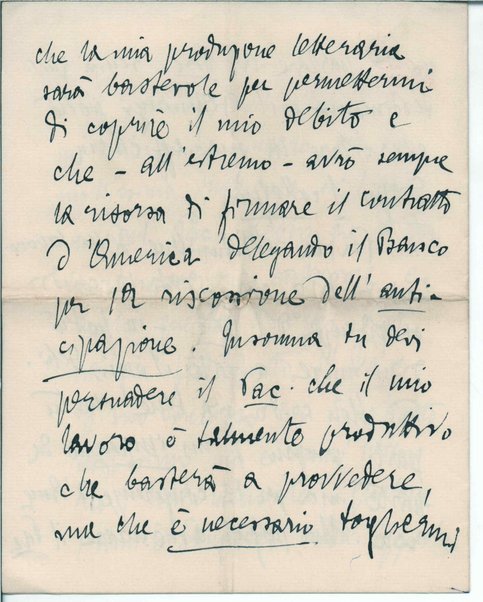 che la mia produzione letteraria
sarà bastevole per permettermi
di coprire il mio debito e
che - all'estremo - avrò sempre
la risorsa di firmare il contratto
d'America delegando il Banco
per la riscossione dell'anti-
cipazione. Insomma tu devi
persuadere il Pac. che il mio
lavoro è talmente produttivo
che basterà a provvedere,
ma che è necessario togliermi